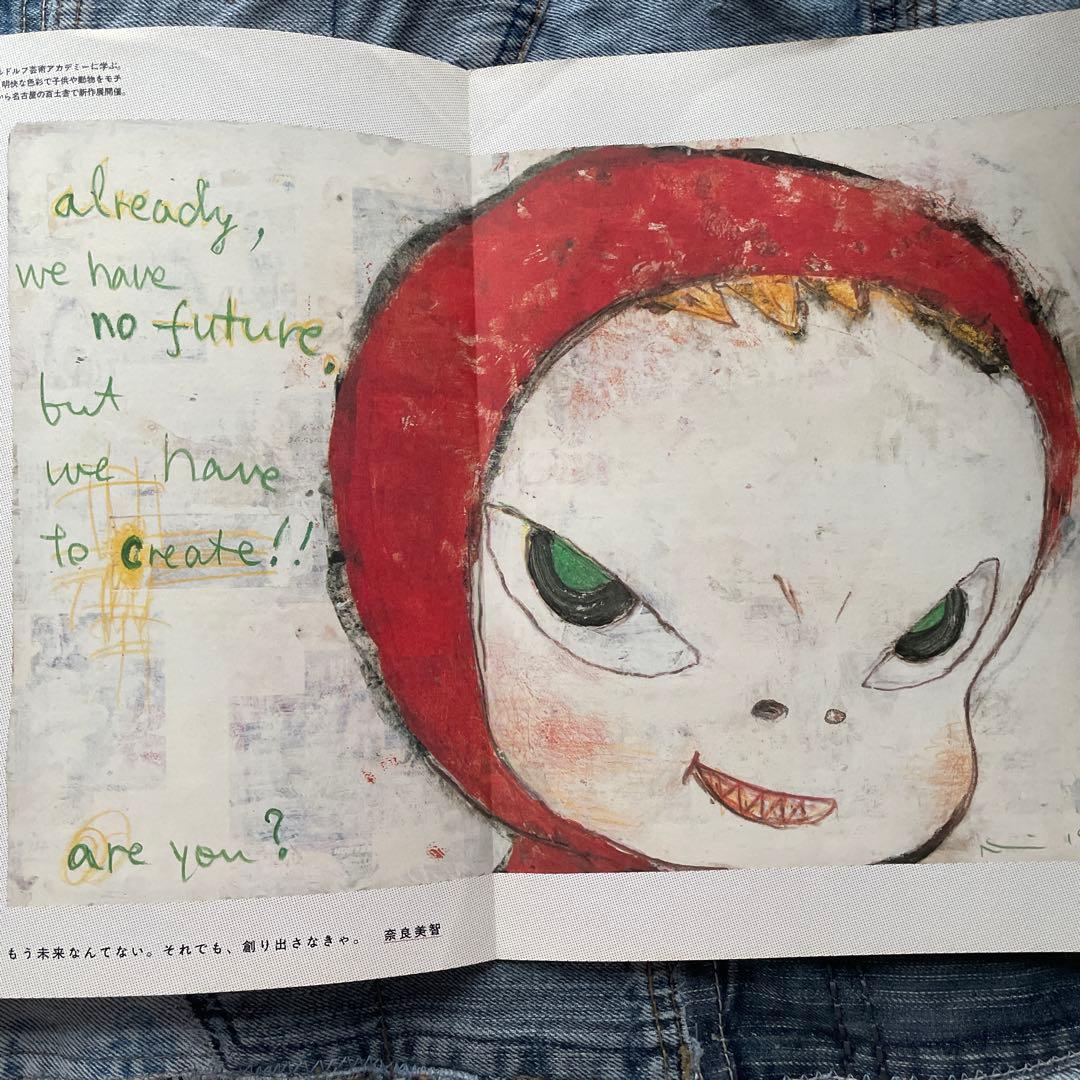 ルドルフ芸術アカデミーに学ぶ。
明快な色彩で子供や動物をモチ
から名古屋の白土舎で新作展開催。
already,
we have
no future.
but
we have
to create!!
are you?
もう未来なんてない。それでも、創り出さなきゃ。 奈良美智